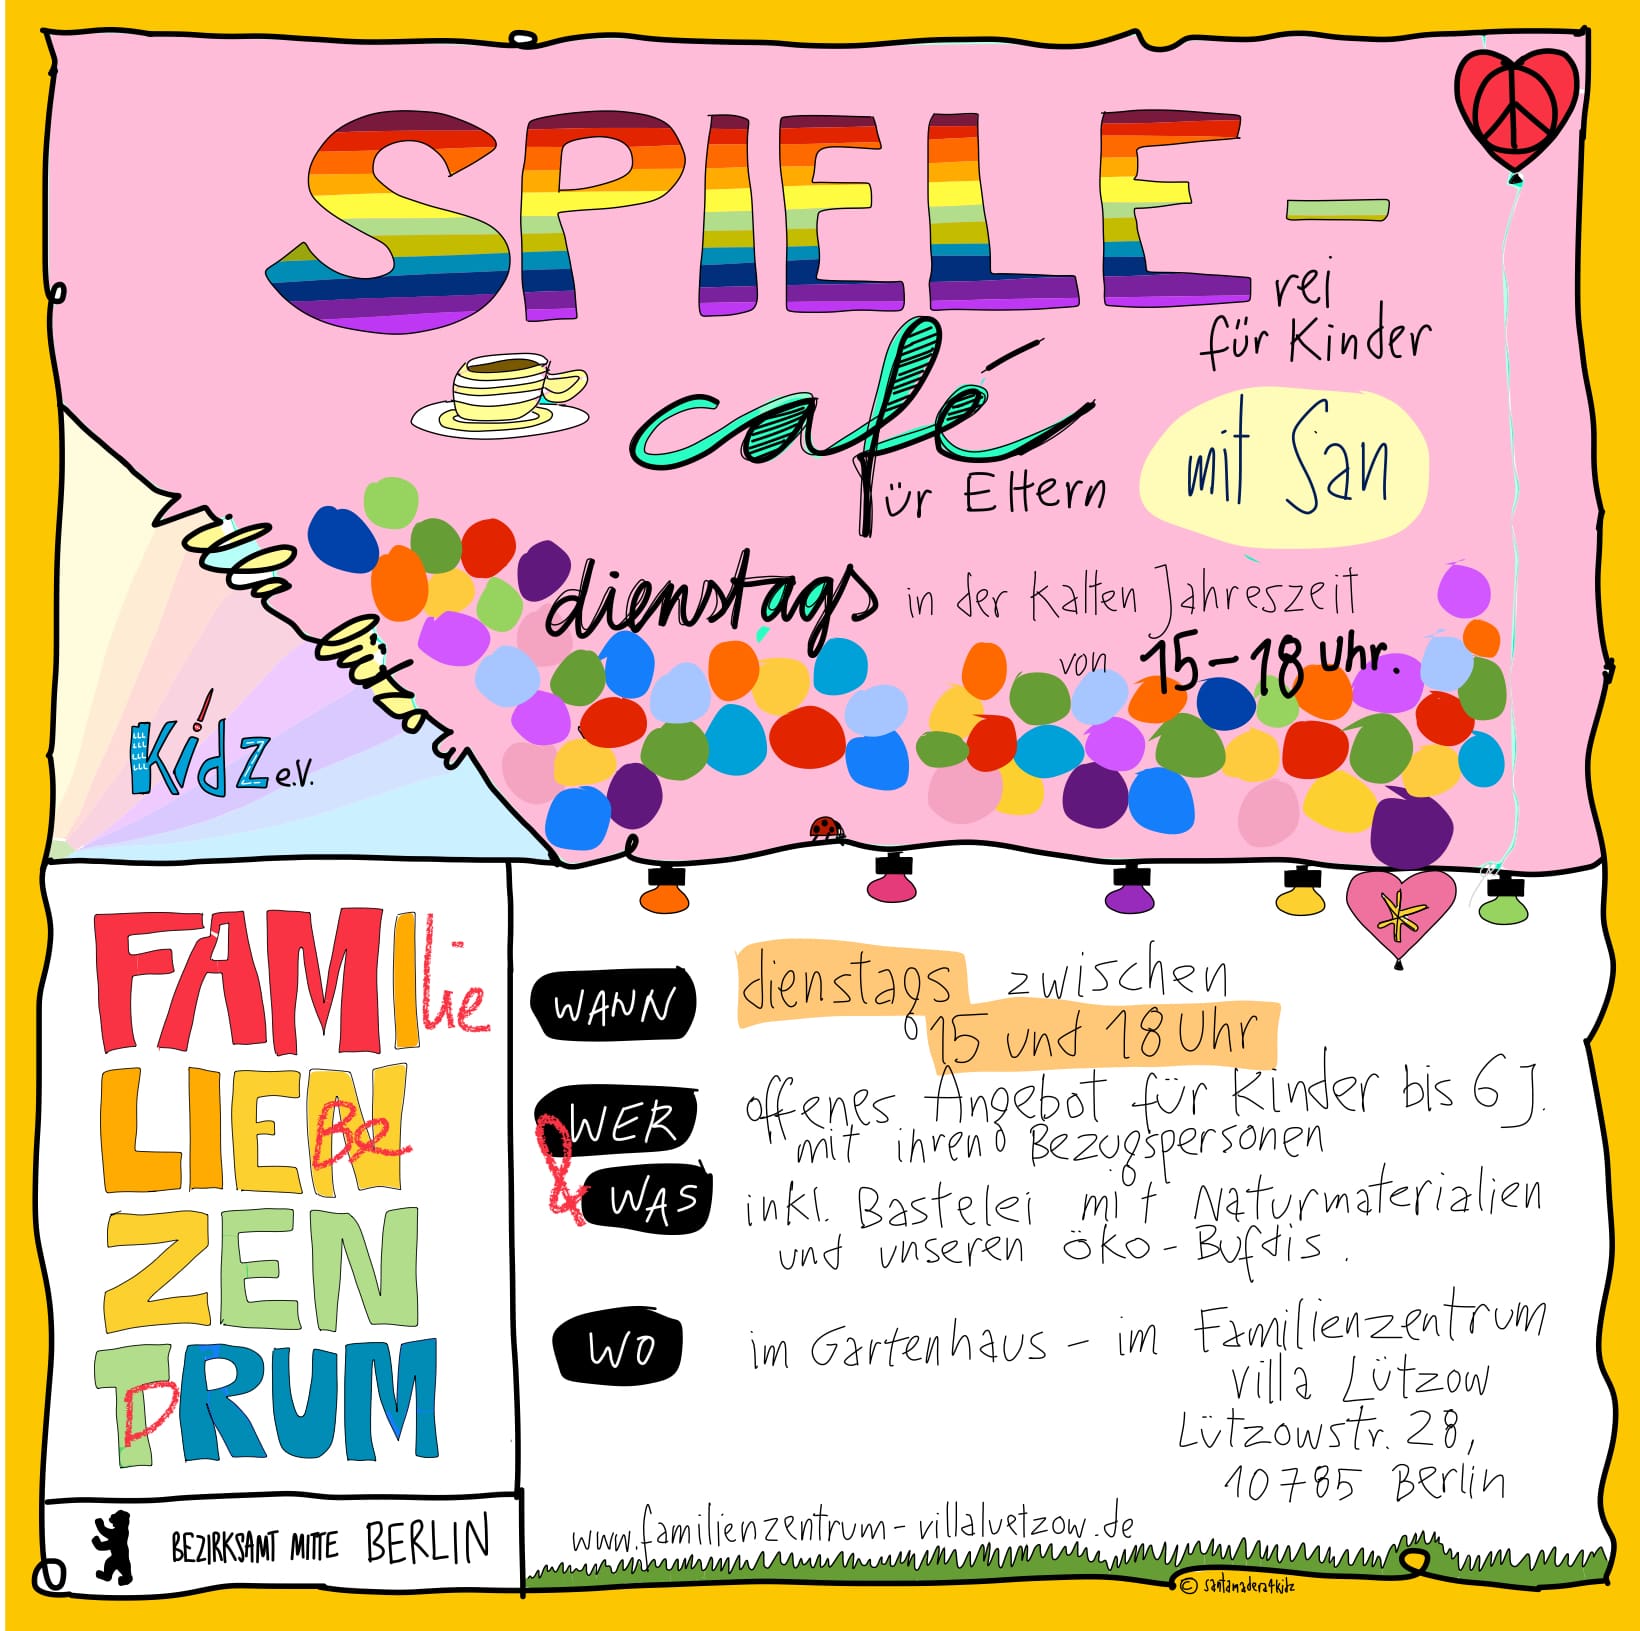 SPIELE-
rei
für Kinder
café
für Eltern
mit San
dienstags in der kalten Jahreszeit
von 15-18 Uhr.
villa lützow
Kidz e.V.
FAMIlie
LIEN Be
ZEN
TRUM D
BEZIRKSAMT MITTE BERLIN
WANN
dienstags zwischen
15 und 18 Uhr
WER
offenes Angebot für Kinder bis 6 J.
mit ihren Bezugspersonen
&
WAS
inkl. Bastelei mit Naturmaterialien
und unseren öko-Bufdis.
WO
im Gartenhaus - im Familienzentrum
Villa Lützow
Lützowstr. 28,
10785 Berlin
www.familienzentrum-villaluetzow.de
© santamadera4kidz